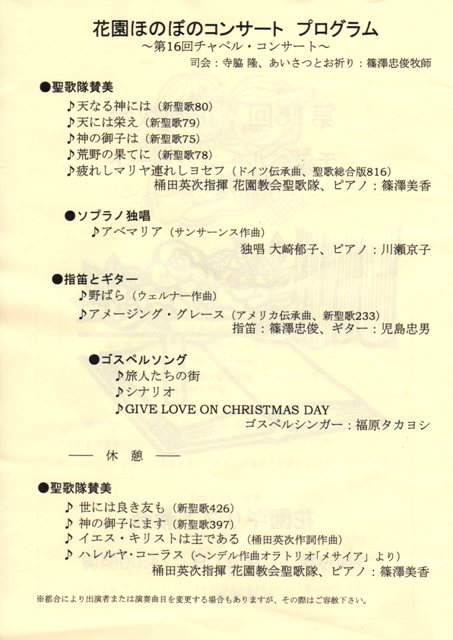 花園ほのぼのコンサート プログラム
～第16回チャペル・コンサート～
司会：寺脇 隆、あいさつとお祈り：篠澤忠俊牧師
●聖歌隊賛美
♪天なる神には（新聖歌80）
♪天には栄え（新聖歌79）
♪神の御子は（新聖歌75）
♪荒野の果てに（新聖歌78）
♪疲れしマリヤ連れしヨセフ（ドイツ伝承曲、聖歌総合版816）
桶田英次指揮 花園教会聖歌隊、ピアノ：篠澤美香
●ソプラノ独唱
♪アベマリア（サンサーンス作曲）
独唱 大崎郁子、ピアノ：川瀬京子
●指笛とギター
♪野ばら（ウェルナー作曲）
♪アメージング・グレース（アメリカ伝承曲、新聖歌233）
指笛：篠澤忠俊、ギター：児島忠男
●ゴスペルソング
♪旅人たちの街
♪シナリオ
♪GIVE LOVE ON CHRISTMAS DAY
ゴスペルシンガー：福原タカヨシ
―― 休 憩 ――
●聖歌隊賛美
♪ 世には良き友も（新聖歌426）
♪ 神の御子にます（新聖歌397）
♪ イエス・キリストは主である（桶田英次作詞作曲）
♪ ハレルヤ・コーラス（ヘンデル作曲オラトリオ「メサイア」より）
桶田英次指揮 花園教会聖歌隊、ピアノ：篠澤美香
※都合により出演者または演奏曲目を変更する場合もありますが、その際はご容赦下さい。